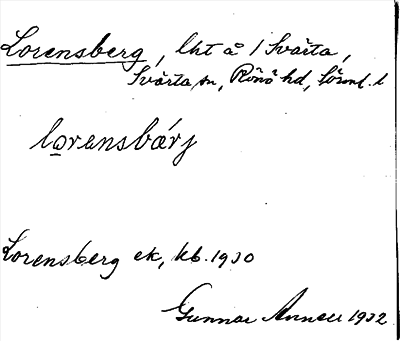 Lorensberg, lht å /Svärta,
Svärta sn, Rönö hd, Sörml. l
lorensbærj
Lorensberg ek, kb. 1930
Gunnar 1932